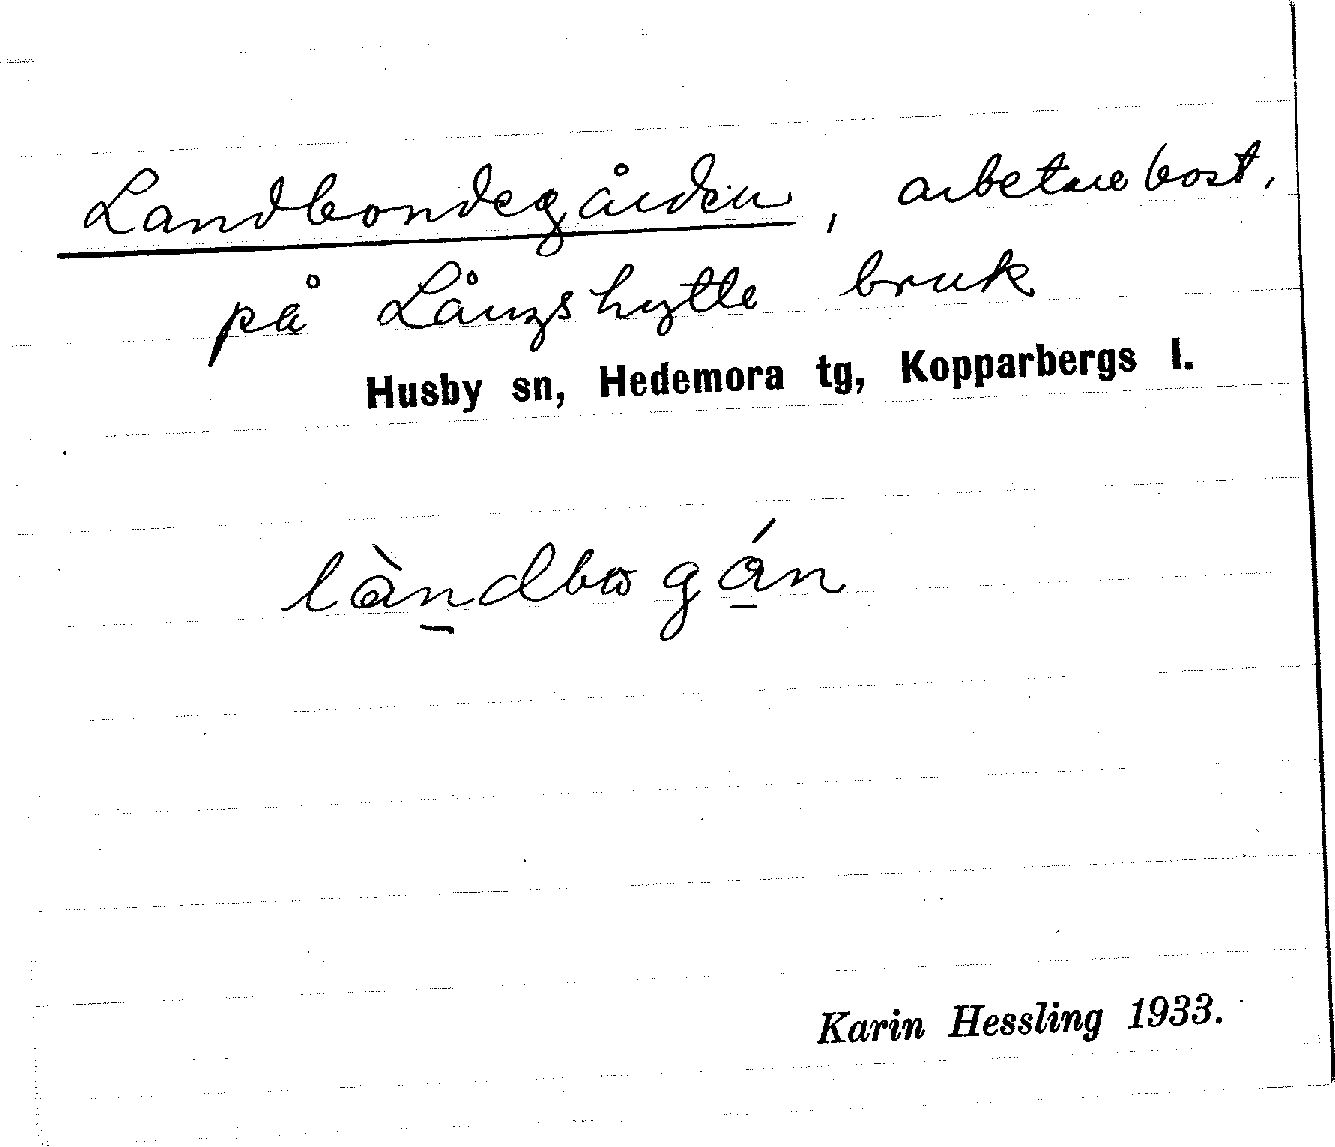 Landbondegården, arbetarebost.
på Långshytte bruk
Husby sn, Hedemora tg, Kopparbergs l.
làndbogán
Karin Hessling 1933.